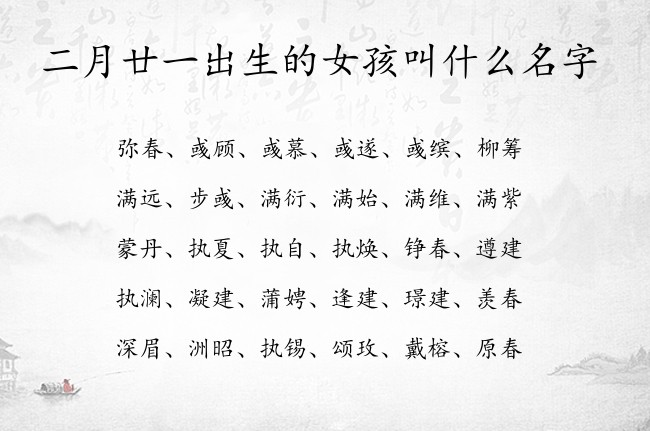 二月廿一出生的女孩叫什么名字
弥春、彧顾、彧慕、彧遂、彧缤、柳筹
满远、步彧、满衍、满始、满维、满紫
蒙丹、执夏、执自、执焕、铮春、遵建
执澜、凝建、蒲娉、逢建、璟建、羡春
深眉、洲昭、执锡、颂玫、戴榕、原春